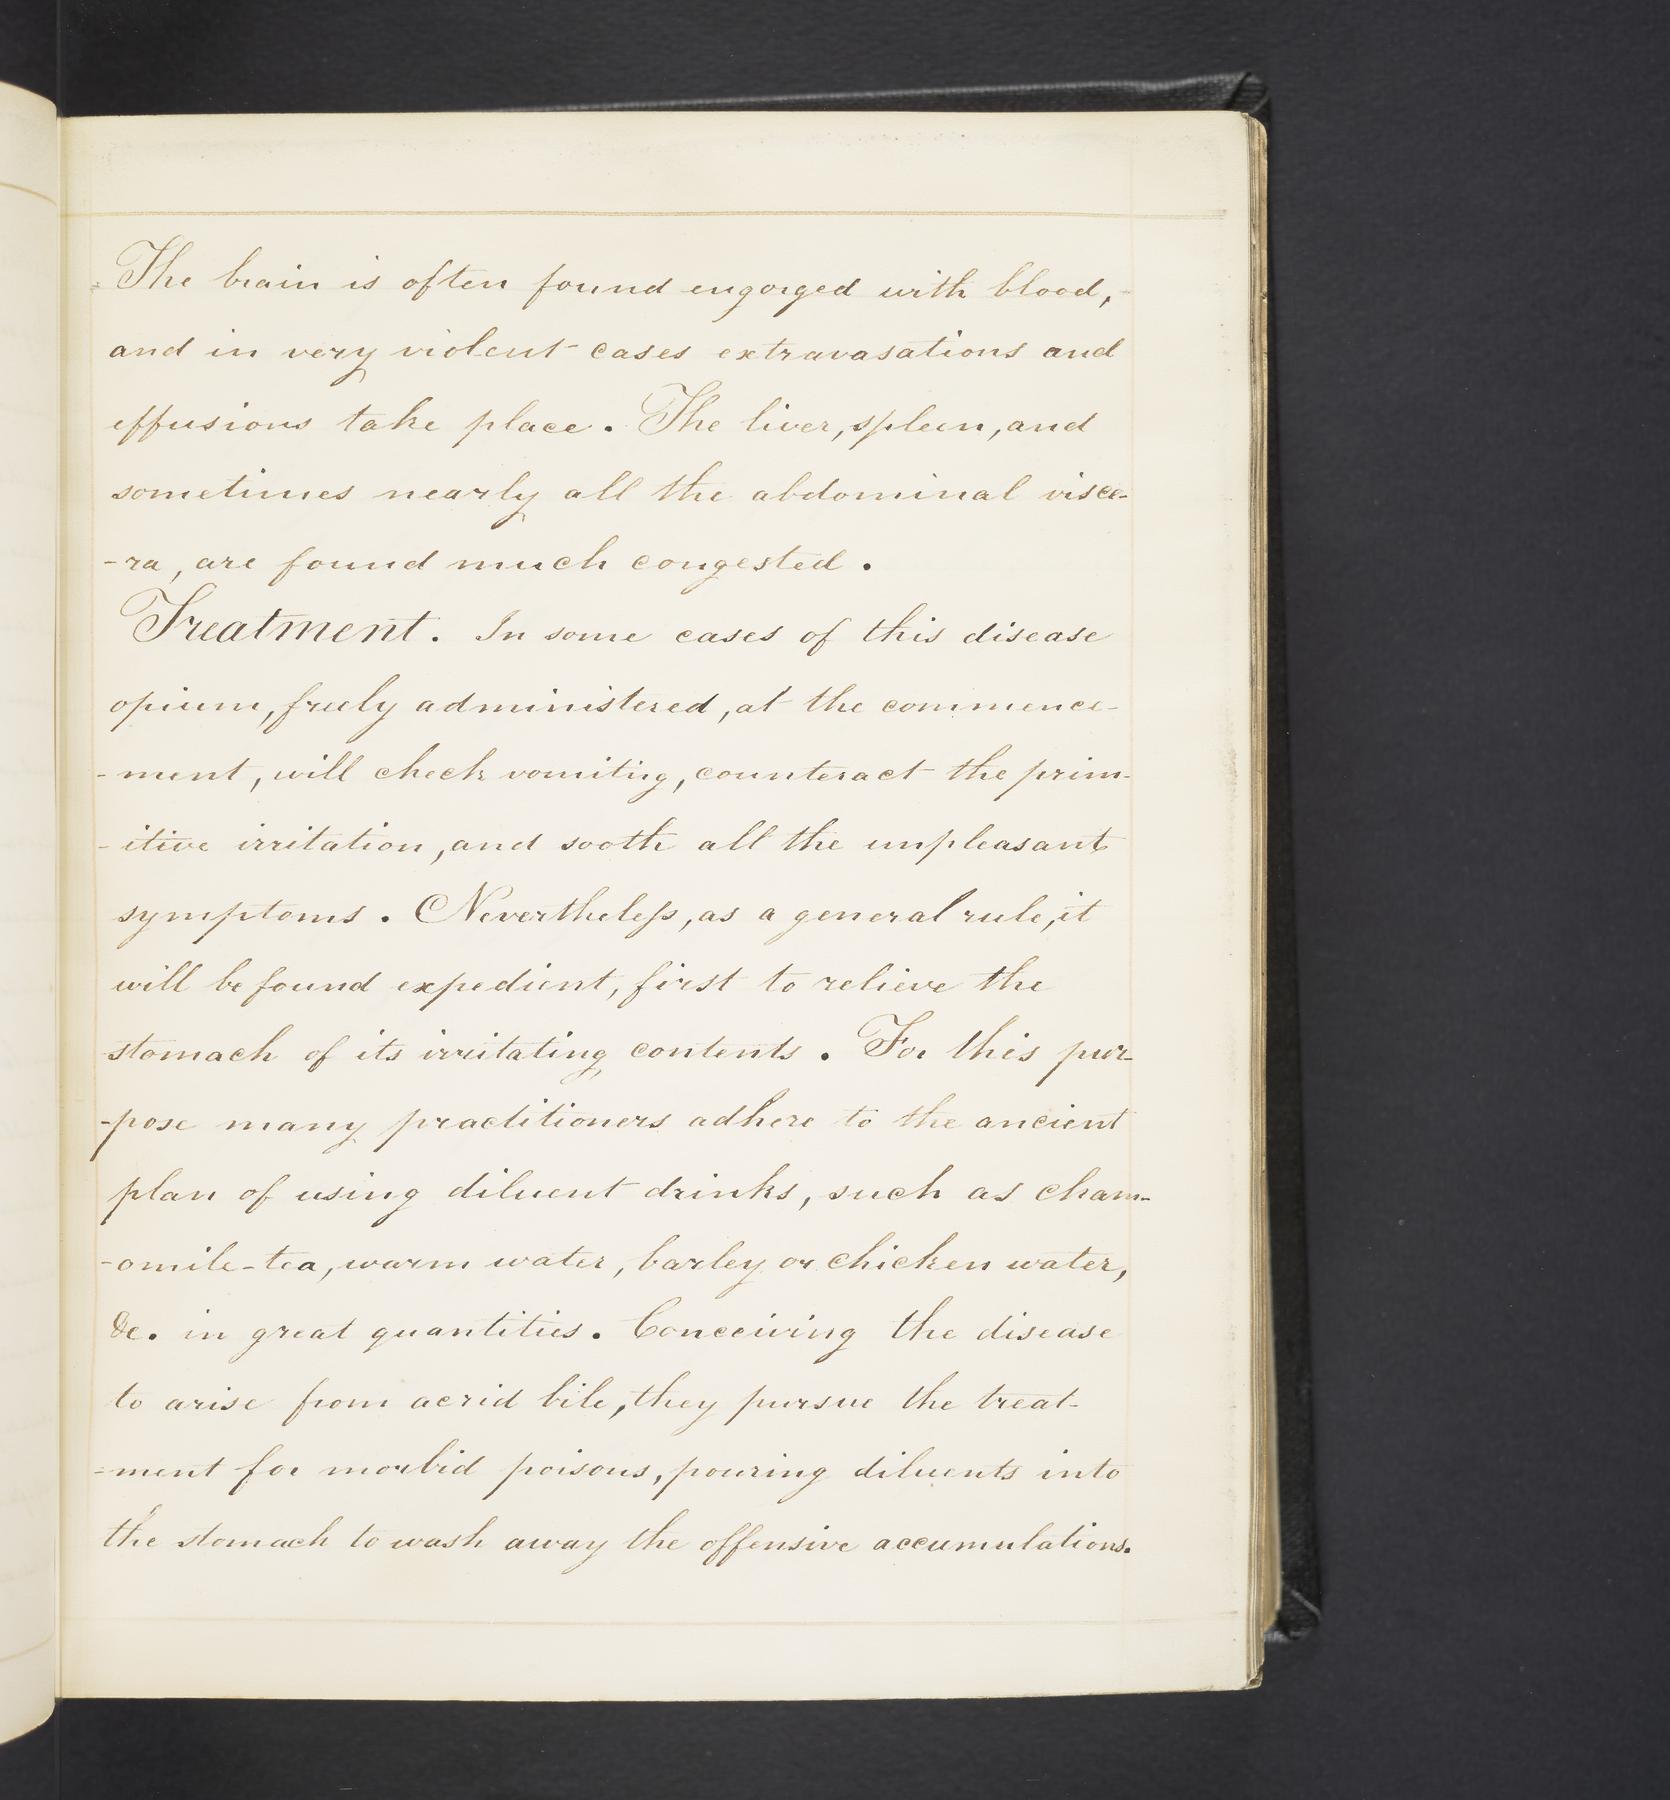 The brain is often found engorged with blood,
and in very violent cases extravasations and
effusions take place. The liver, spleen, and
sometimes nearly all the abdominal visce-
-ra, are found much congested.
Treatment. In some cases of this disease
opium, freely administered, at the commence-
-ment, will check vomiting, counteract the prim-
-itive irritation, and sooth all the unpleasant
symptoms. Nevertheless, as a general rule, it
will be found expedient, first to relieve the
stomach of its irritating contents. For this pur-
-pose many practitioners adhere to the ancient
plan of using diluent drinks, such as cham-
-omile-tea, warm water, barley or chicken water,
&c. in great quantities. Conceiving the disease
to arise from acrid bile, they pursue the treat-
-ment for morbid poisons, pouring diluents into
the stomach to wash away the offensive accumulations.